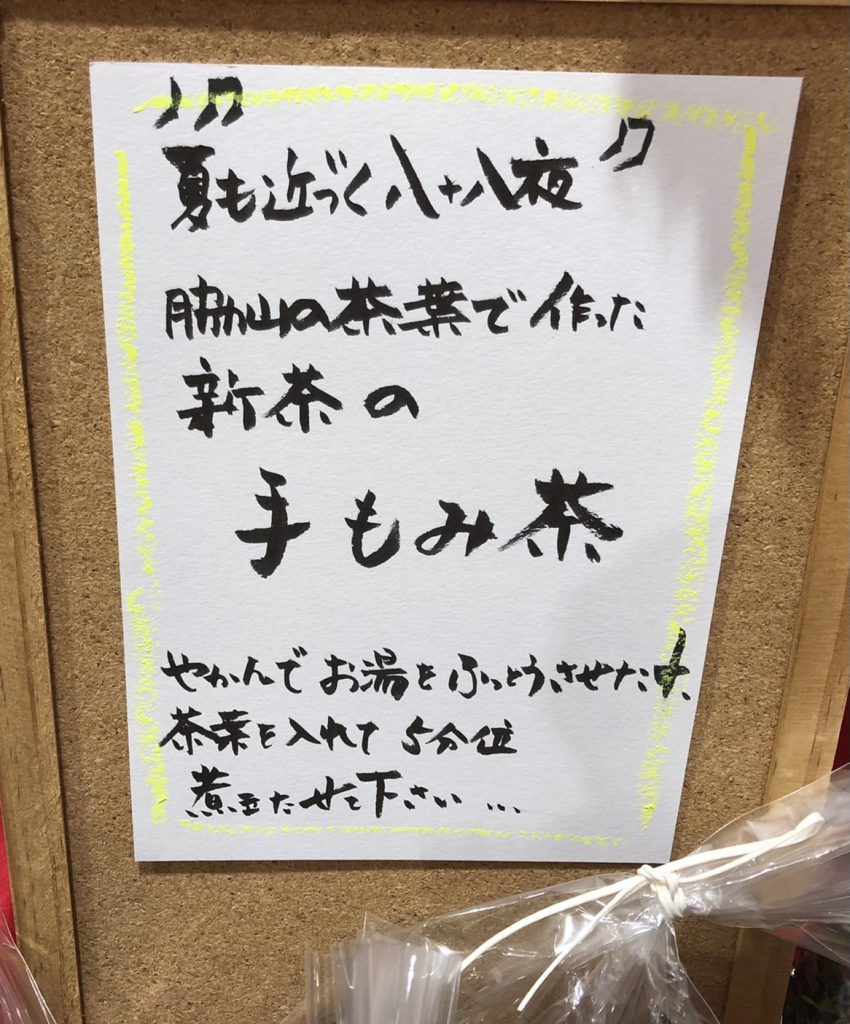 ♪♫
夏も近づく八十八夜♫
脇山の茶葉で作った
新茶の
手もみ茶
やかんでお湯をふっとうさせた中
茶葉を入れて 5分位
煮立たせて下さい…